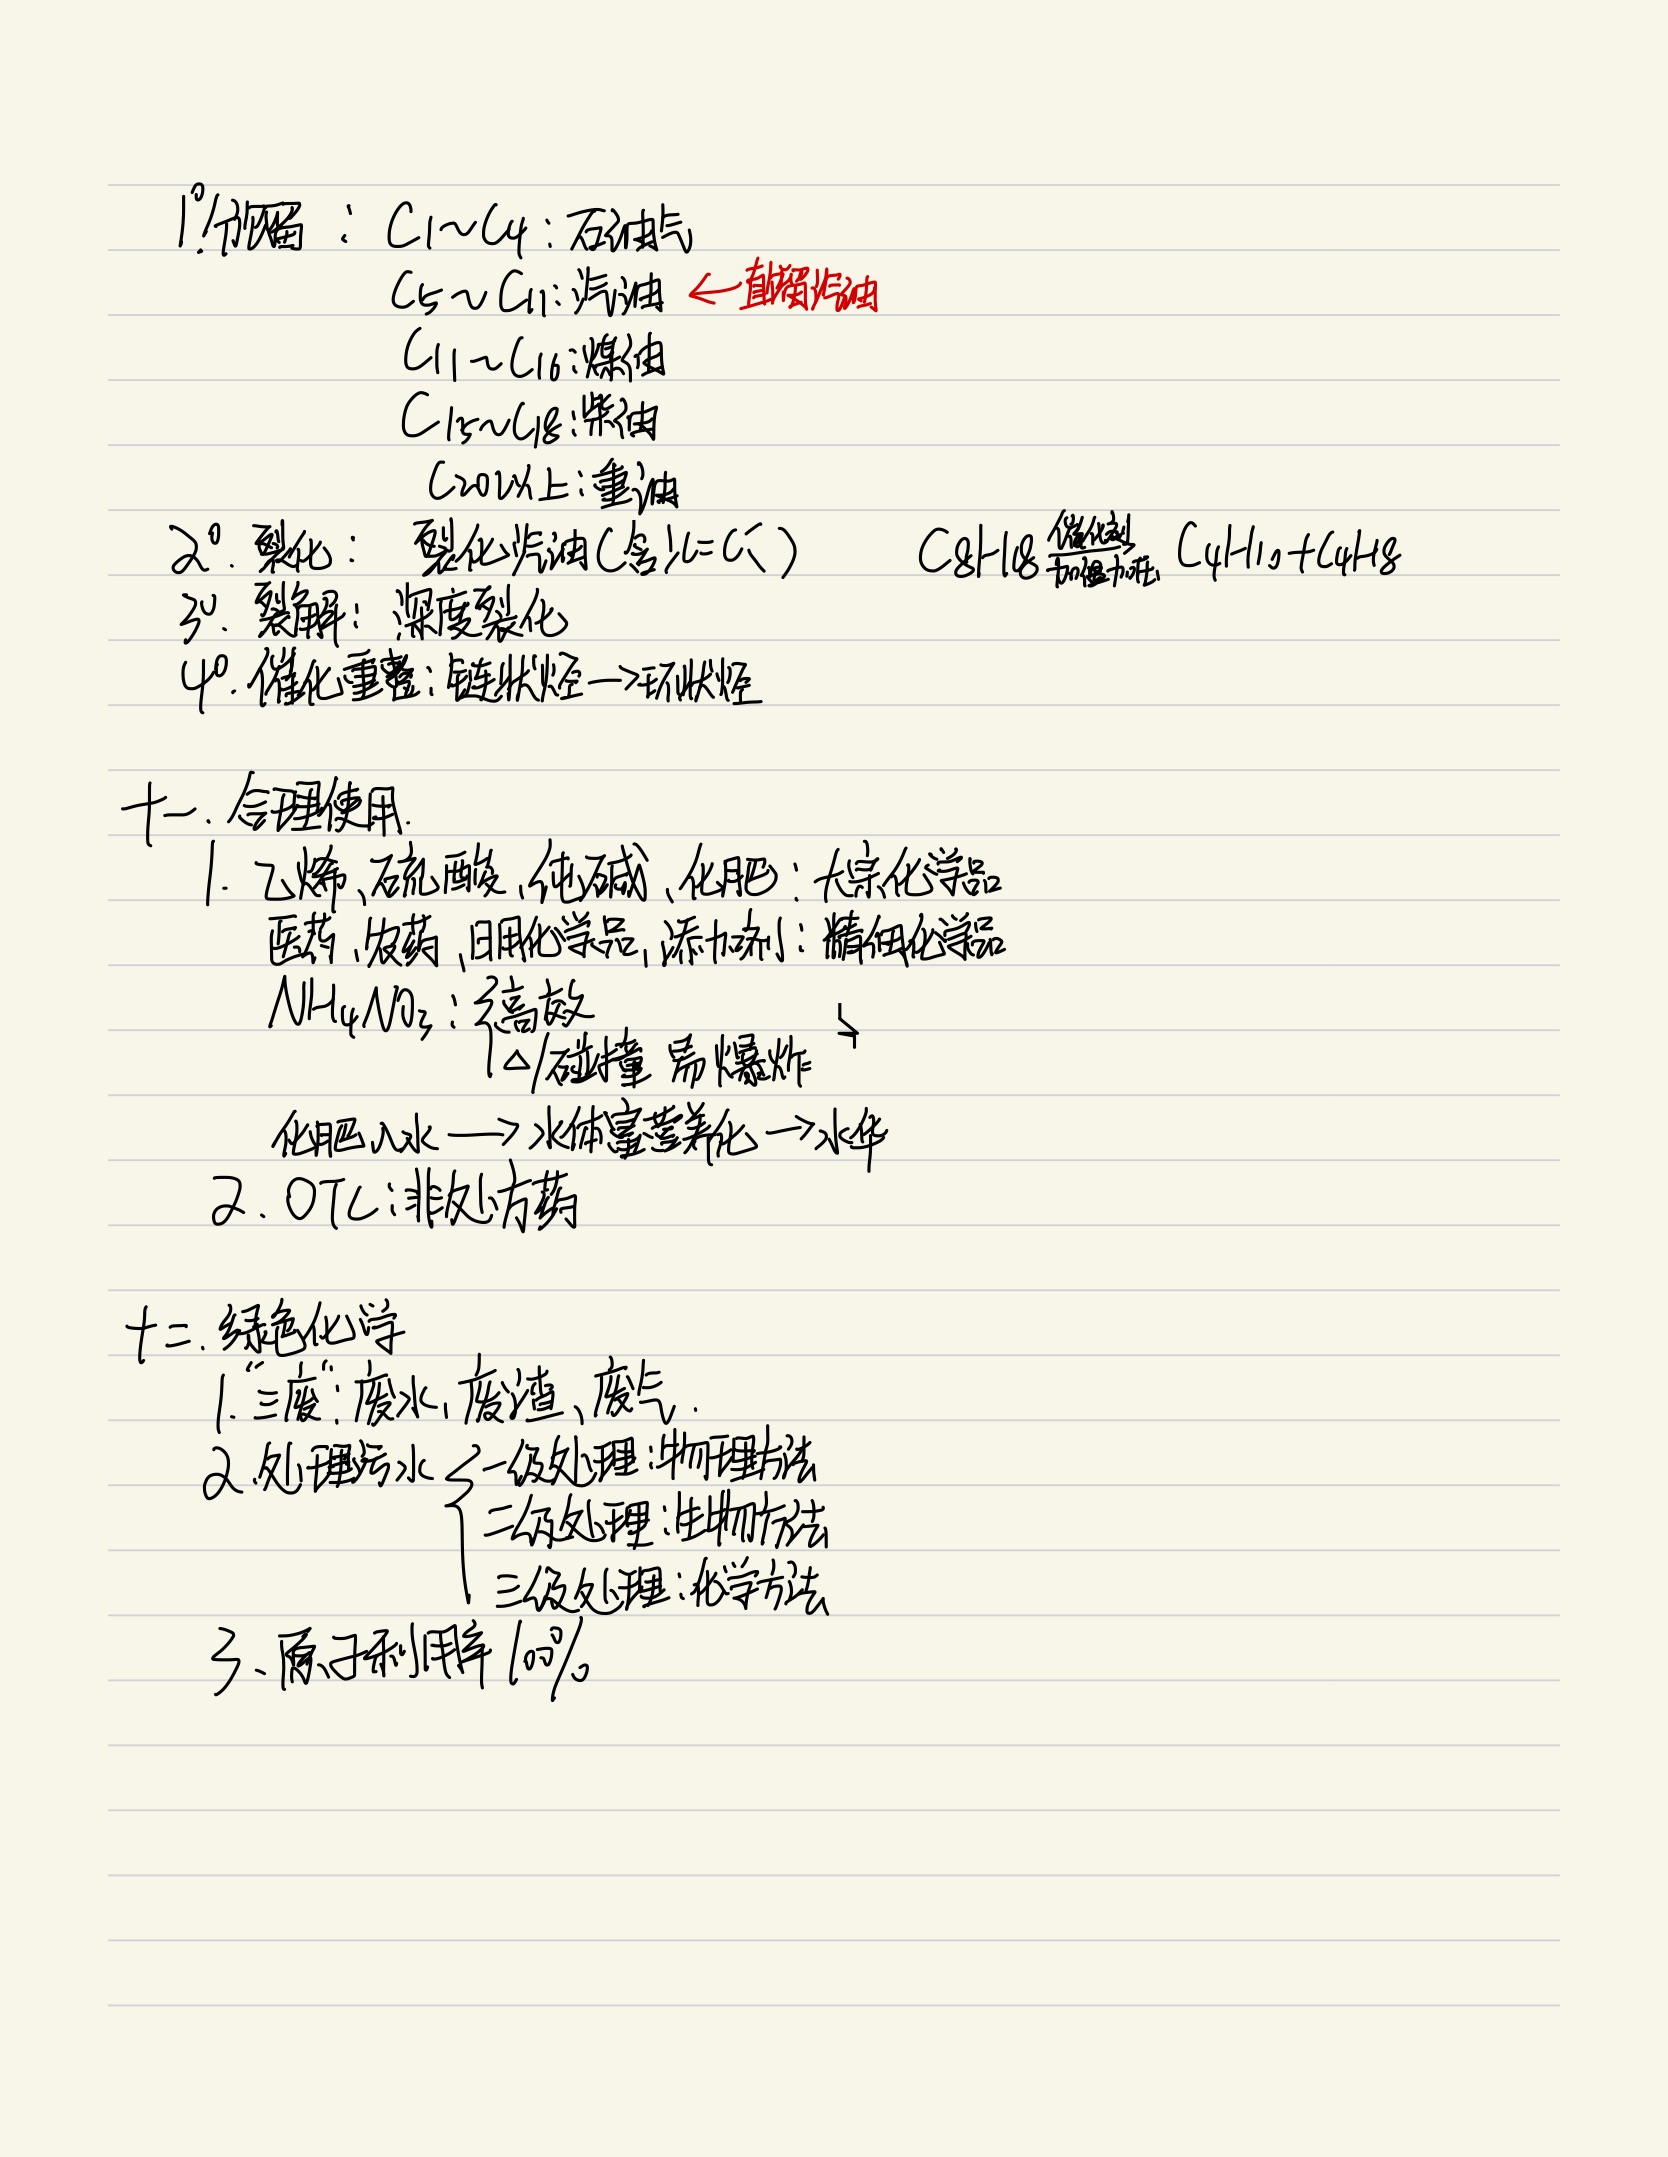 1°.分馏：C1~C4：石油气
C5~C11：汽油 ←直馏汽油
C11~C16：煤油
C15~C18：柴油
C20以上：重油
2°.裂化： 裂化汽油(含\C=C/) C8H18 催化剂/加温加压 C4H10+C4H8
3°.裂解：深度裂化
4°.催化重整：链状烃→环状烃
十一.合理使用.
1.乙烯、硫酸、纯碱、化肥：大宗化学品
医药、农药、日用化学品、添加剂：精细化学品
NH4NO3：{高效
△/碰撞 易爆炸
化肥入水→水体富营养化→水华
2.OTC：非处方药
十二.绿色化学
1.“三废”：废水、废渣、废气.
2.处理污水{一级处理：物理方法
二级处理：生物方法
三级处理：化学方法
3、原子利用率100%